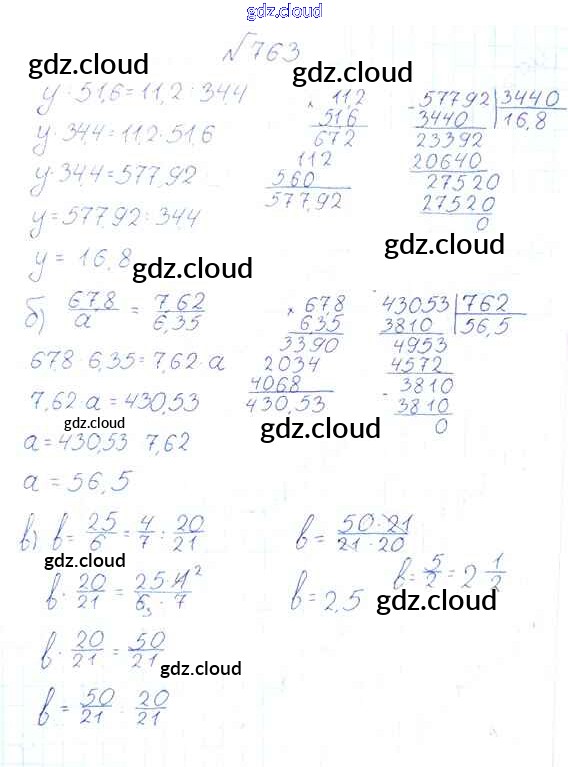 gdz.cloud
№763
gdz.cloud
gdz.cloud
y : 51,6 = 11,2 : 34,4
y · 34,4 = 11,2 · 51,6
y · 34,4 = 577,92
y = 577,92 : 34,4
y = 16,8
gdz.cloud
× 11,2
51,6
672
112
560
577,92
- 57792 | 3440
3440 | 16,8
23392
20640
27520
27520
0
gdz.cloud
б) 67,8/a = 7,62/6,35
67,8 6,35 = 7,62 · a
7,62 · a = 430,53
gdz.cloud
a = 430,53 7,62
a = 56,5
× 67,8
6,35
3390
2034
4068
430,53
gdz.cloud
43053 | 762
3810 | 56,5
4953
4572
- 3810
3810
0
в) b = 25/6 = 4/7 : 20/21
gdz.cloud
b · 20/21 = 25·4²/6₃·7
b · 20/21 = 50/21
gdz.cloud
b = 50/21 : 20/21
b = 50·21/21·20
b = 5/2 = 2 1/2
b = 2,5
gdz.cloud